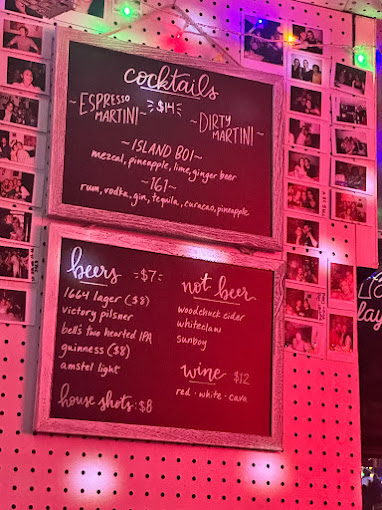 cocktails
~ESPRESSO MARTINI~
$14
~DIRTY MARTINI~
~ISLAND BOI~
mezcal, pineapple, lime, ginger beer
~167~
rum, vodka, gin, tequila, curacao, pineapple
beers
$7
1664 lager ($8)
victory pilsner
bell's two hearted IPA
guinness ($8)
amstel light
house shots: $8
not beer
woodchuck cider
whiteclaw
sunboy
wine $12
red · white · cava